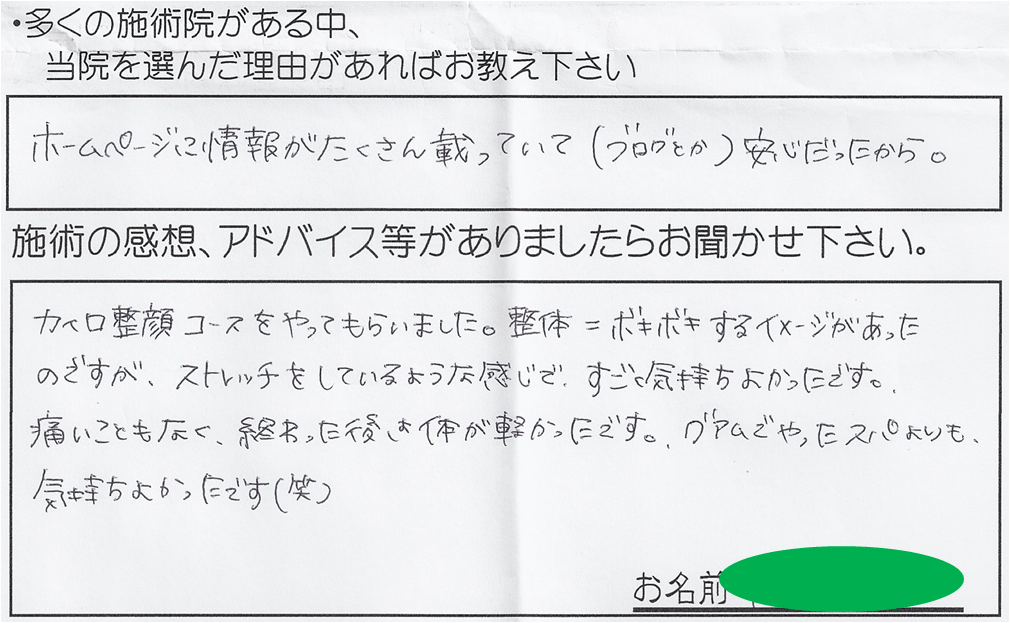 ・多くの施術院がある中、
当院を選んだ理由があればお教え下さい
ホームページに情報がたくさん載っていて(ブログとか)安心だったから。
施術の感想、アドバイス等がありましたらお聞かせ下さい。
カイロ整顔コースをやってもらいました。整体=ボキボキするイメージがあった
のですが、ストレッチをしているような感じで、すごく気持ちよかったです。
痛いこともなく、終わった後は体が軽かったです。グアムでやったスパよりも、
気持ちよかったです(笑)
お名前